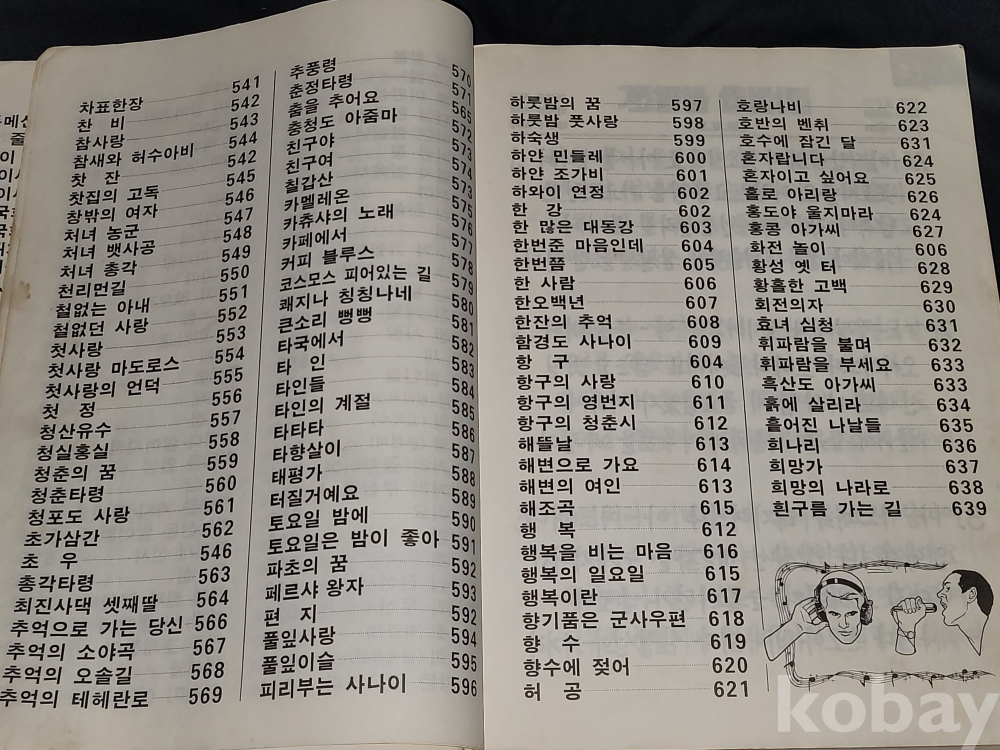 차표한장 541
찬 비 542
참사랑 543
참새와 허수아비 544
찻 잔 542
찻집의 고독 545
창밖의 여자 546
처녀 농군 547
처녀 뱃사공 548
처녀 총각 549
천리먼길 550
철없는 아내 551
철없던 사랑 552
첫사랑 553
첫사랑 마도로스 554
첫사랑의 언덕 555
첫 정 556
청산유수 557
청실홍실 558
청춘의 꿈 559
청춘타령 560
청포도 사랑 561
초가삼간 562
초 우 546
총각타령 563
최진사댁 셋째딸 564
추억으로 가는 당신 566
추억의 소야곡 567
추억의 오솔길 568
추억의 테헤란로 569
추풍령 570
춘정타령 571
춤을 추어요 565
충청도 아줌마 572
친구야 573
친구여 574
칠갑산 573
카멜레온 575
카츄샤의 노래 576
카페에서 577
커피 블루스 578
코스모스 피어있는 길 579
쾌지나 칭칭나네 580
큰소리 뻥뻥 581
타국에서 582
타 인 583
타인들 584
타인의 계절 585
타타타 586
타향살이 587
태평가 588
터질거예요 589
토요일 밤에 590
토요일은 밤이 좋아 591
파초의 꿈 592
페르샤 왕자 593
편 지 592
풀잎사랑 594
풀잎이슬 595
피리부는 사나이 596
하룻밤의 꿈 597
하룻밤 풋사랑 598
하숙생 599
하얀 민들레 600
하얀 조가비 601
하와이 연정 602
한 강 602
한 많은 대동강 603
한번준 마음인데 604
한번쯤 605
한 사람 606
한오백년 607
한잔의 추억 608
함경도 사나이 609
항 구 604
항구의 사랑 610
항구의 영번지 611
항구의 청춘시 612
해뜰날 613
해변으로 가요 614
해변의 여인 613
해조곡 615
행 복 612
행복을 비는 마음 616
행복의 일요일 615
행복이란 617
향기품은 군사우편 618
향 수 619
향수에 젖어 620
허 공 621
호랑나비 622
호반의 벤취 623
호수에 잠긴 달 631
혼자랍니다 624
혼자이고 싶어요 625
홀로 아리랑 626
홍도야 울지마라 624
홍콩 아가씨 627
화전 놀이 606
황성 옛 터 628
황홀한 고백 629
회전의자 630
효녀 심청 631
휘파람을 불며 632
휘파람을 부세요 633
흑산도 아가씨 633
흙에 살리라 634
흩어진 나날들 635
희나리 636
희망가 637
희망의 나라로 638
흰구름 가는 길 639
kobay